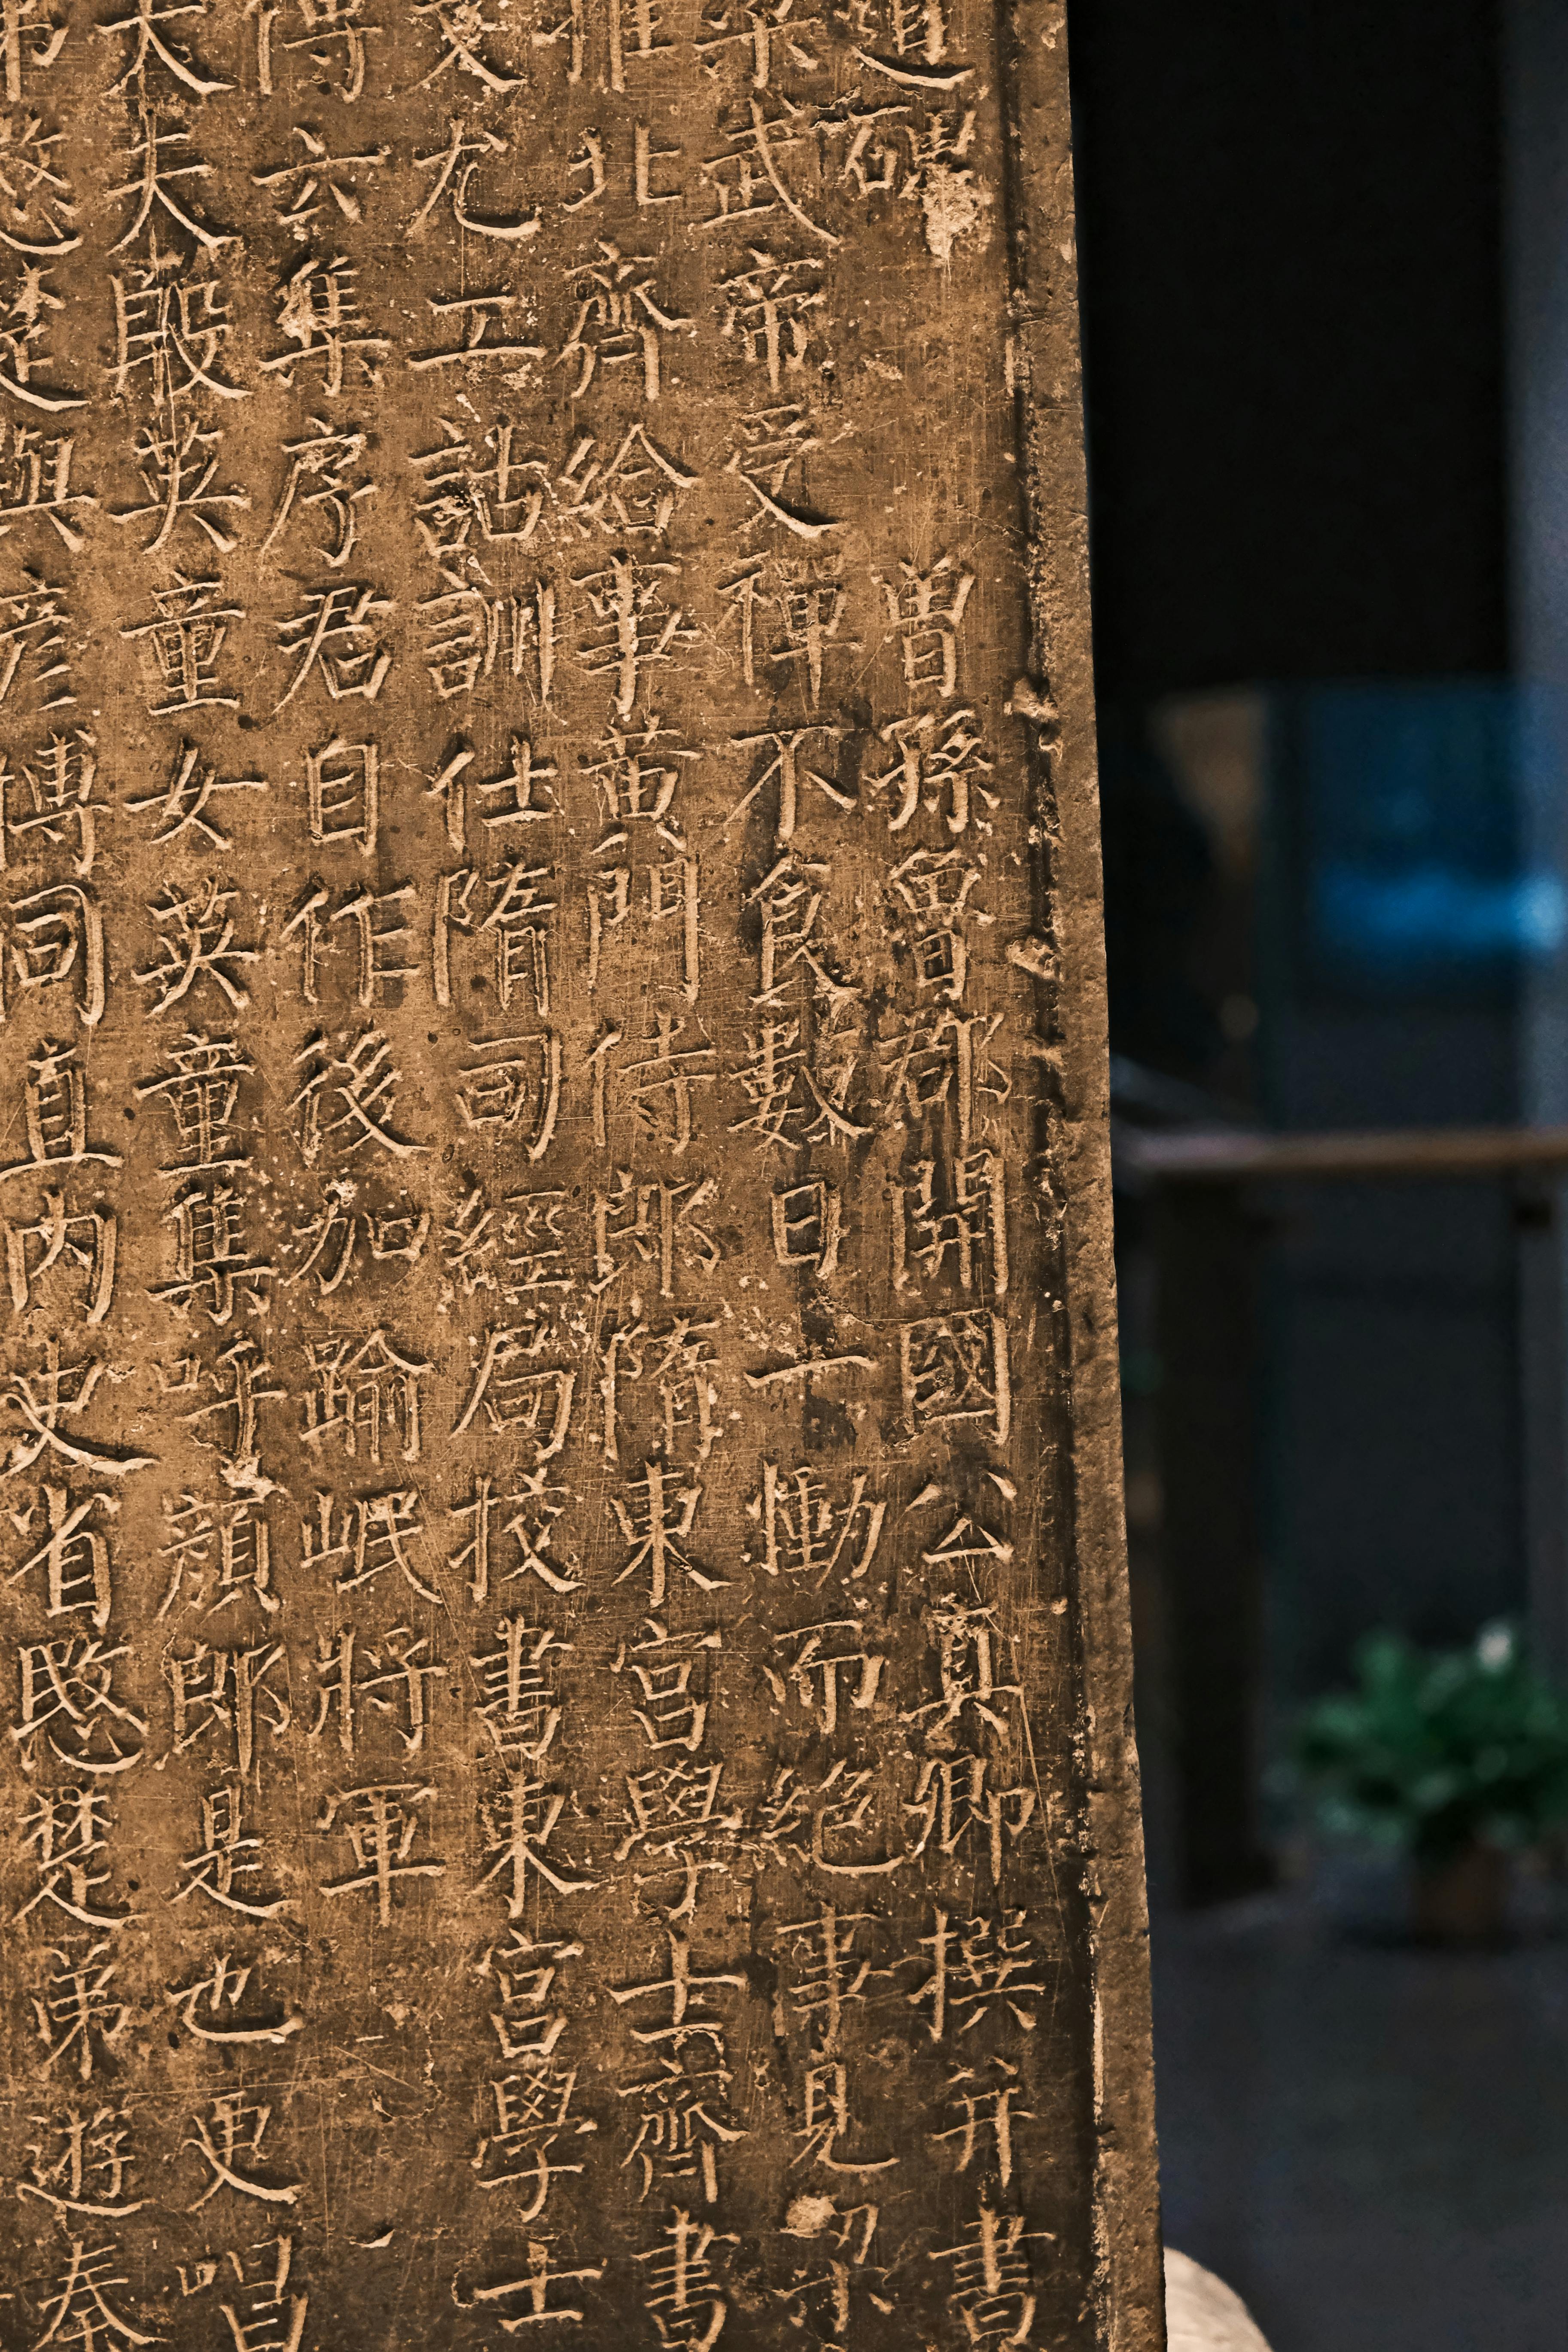 道碑 曾孫魯郡開國公真卿撰并書
梁武帝受禪不食數日一慟而絕事見梁
推北齊給事黃門侍郎隋東宮學士齊書
文尤工詁訓仕隋司經局校書東宮學士
傳六集序君自作後加踰岷將軍
大夫殷英童女英童集呼顏郎是也更唱
弟愍楚與彥博同直内史省愍楚弟遊秦